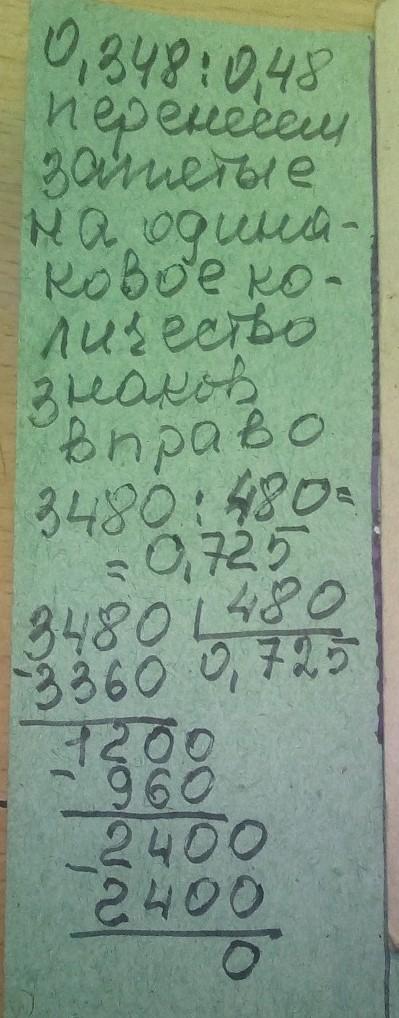 0,348:0,48
перенесем
запятые
на одина-
ковое ко-
личество
знаков
вправо
3480:480=
=0,725
3480 480
-3360 0,725
1200
-960
2400
-2400
0